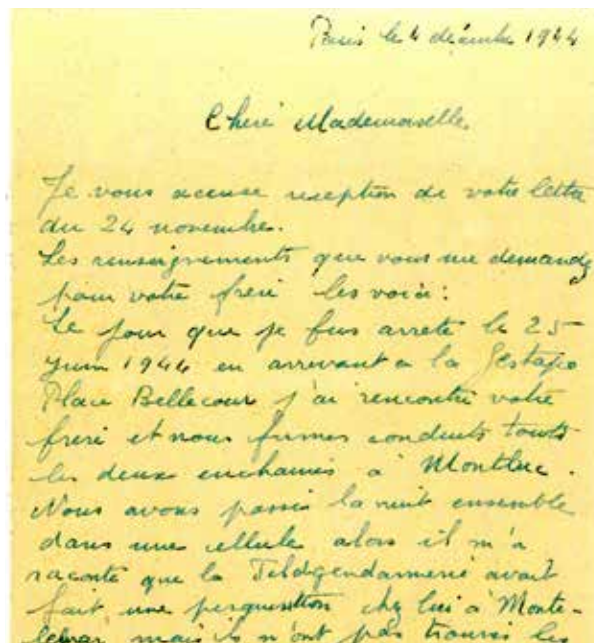 Paris le 4 décembre 1944
Cheré Mademoiselle
Je vous accuse reception de votre lettre
du 24 novembre.
Les renseignements que vous me demandez
pour votre freré les voici:
Le jour que je fus arreté le 25
Juin 1944 en arrevant a la Gestapo
Place Bellecour j'ai rencontré votre
freré et nous fumes conduits touts
les deux enchainés à Montluc.
Nous avons passés la nuit ensemble
dans une cellule alors il m'a
raconté que la Feldgendarmerié avait
fait une perquisition chez lui à Monte-
lemar mais ils n'ont pas trouvés les